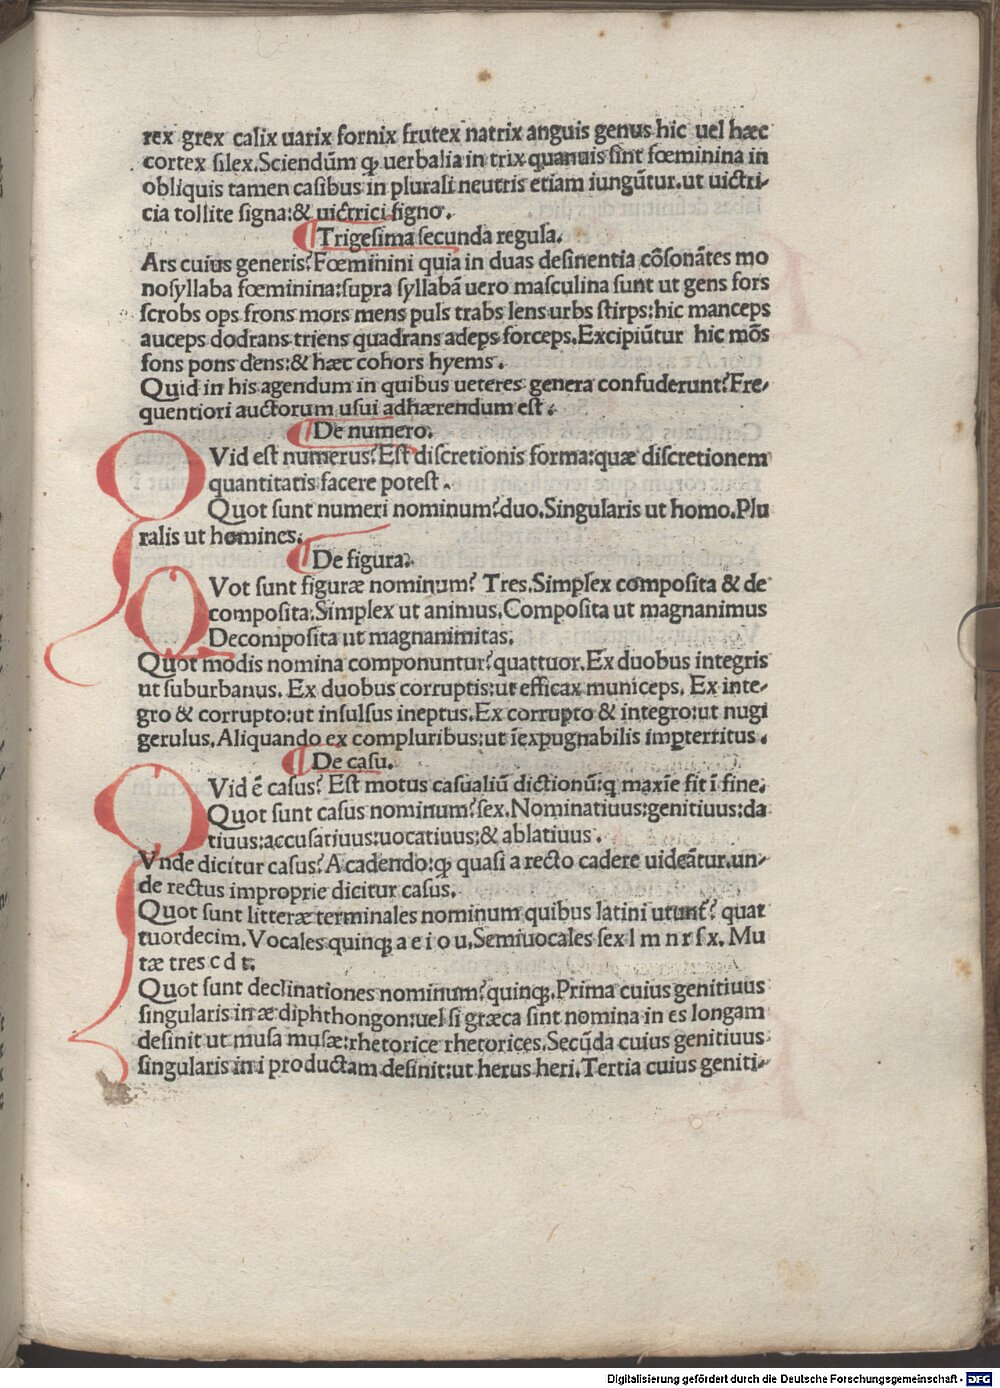 rex grex calix uarix fornix frutex natrix anguis genus hic uel hæc
cortex silex.Sciendũm ꝙ uerbalia in trix quanuis sint fœminina in
obliquis tamen casibus in plurali neutris etiam iungũtur.ut uictri-
cia tollite signa:& uictrici signo.
¶Trigesima secunda regula.
Ars cuius generis?Fœminini quia in duas desinentia cõsonãtes mo
nosyllaba fœminina:supra syllabã uero masculina sunt ut gens fors
scrobs ops frons mors mens puls trabs lens urbs stirps:hic manceps
auceps dodrans triens quadrans adeps forceps.Excipiũtur hic mõs
fons pons dens:& hæc cohors hyems.
Quid in his agendum in quibus ueteres genera confuderunt?Fre-
quentiori auctorum usui adhærendum est.
¶De numero.
QVid est numerus?Est discretionis forma:quæ discretionem
quantitatis facere potest.
Quot sunt numeri nominum?duo.Singularis ut homo.Plu
ralis ut homines.
¶De figura.
QVot sunt figuræ nominum? Tres.Simplex composita & de
composita.Simplex ut animus.Composita ut magnanimus
Decomposita ut magnanimitas.
Quot modis nomina componuntur?quattuor.Ex duobus integris
ut suburbanus. Ex duobus corruptis:ut efficax municeps. Ex inte-
gro & corrupto:ut insulsus ineptus.Ex corrupto & integro:ut nugi
gerulus.Aliquando ex compluribus:ut ĩexpugnabilis impterritus.
¶De casu.
QVid ẽ casus? Est motus casualiũ dictionũ:q maxĩe fit ĩ fine.
Quot sunt casus nominum?sex.Nominatiuus:genitiuus:da
tiuus:accusatiuus:uocatiuus:& ablatiuus.
Vnde dicitur casus?A cadendo:ꝙ quasi a recto cadere uideãtur.un-
de rectus improprie dicitur casus.
Quot sunt litteræ terminales nominum quibus latini utunt̃? quat
tuordecim.Vocales quinqꝫ a e i o u.Semiuocales sex l m n r s x. Mu
tæ tres c d t.
Quot sunt declinationes nominum?quinqꝫ.Prima cuius genitiuus
singularis in æ diphthongon:uel si græca sint nomina in es longam
desinit ut musa musæ:rhetorice rhetorices.Secũda cuius genitiuus
singularis in i productam desinit:ut herus heri.Tertia cuius geniti-
Digitalisierung gefördert durch die Deutsche Forschungsgemeinschaft - DFG